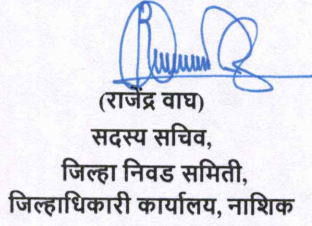 (राजेंद्र वाघ)
सदस्य सचिव,
जिल्हा निवड समिती,
जिल्हाधिकारी कार्यालय, नाशिक